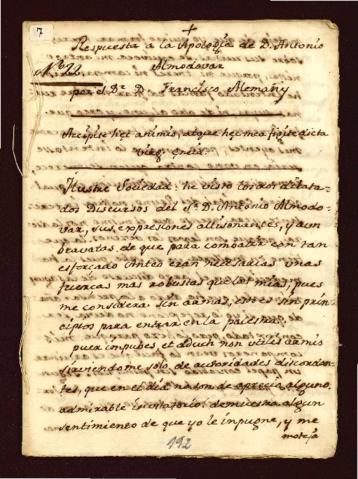 7
+
Respuesta a la Apologia de D. Antonio
Almodovar
por el Dr. D. Francisco Alemañy
Accipite hec animis, atque hec mea figite dicta
virg. eneid.
Ilustre Sociedad: he visto los dilata-
dos Discursos del Sr. D. Antonio Almodo-
var, sus expresiones altisonantes, y aun
bravatas de que para combatir con tan
esforzado Anteo eran necesarias unas
fuerzas mas robustas que las mias; pues
me considera sin armas, esto es sin prin-
cipios para entrar en la palestra,
puer impubes et adhuc non utilis armis
sirviendome solo de autoridades discordan-
tes, que en el dia no son de aprecio alguno.
admirable demuestra algun
sentimiento de que yo le impugne, y me
moteja
192